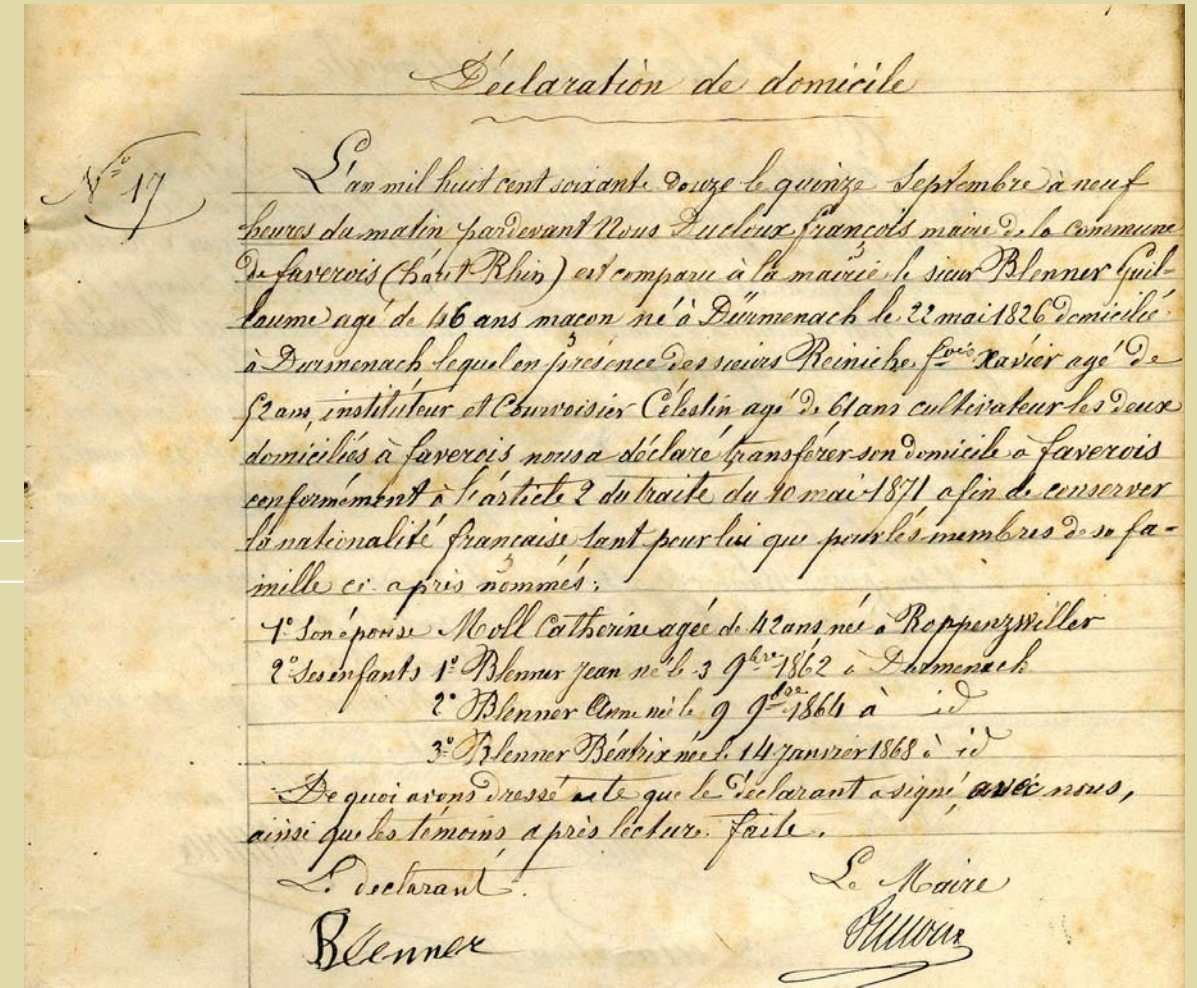 Déclaration de domicile
N° 17
L'an mil huit cent soixante douze le quinze Septembre à neuf
heures du matin pardevant Nous Ducloux françois maire de la commune
de faverois (haut Rhin) est comparu à la mairie le sieur Blenner Guil-
laume agé de 46 ans maçon né à Dürmenach le 22 mai 1826 domicilié
à Durmenach lequel en présence des sieurs Reiniche fois Xavier agé de
52 ans, instituteur et Courvoisier Célestin agé de 61 ans cultivateur les deux
domiciliés à faverois nous a déclaré transférer son domicile à faverois
conformément à l'article 2 du traité du 10 mai 1871 afin de conserver
la nationalité française tant pour lui que pour les membres de sa fa-
mille ci-après nommés :
1° Son épouse Moll Catherine agée de 42 ans née à Roppenzwiller
2° Ses enfants 1° Blenner Jean né le 3 9bre 1862 à Durmenach
2° Blenner Anne née le 9 9bre 1864 à id
3° Blenner Béatrix née le 14 Janvier 1868 à id
De quoi avons dressé acte que le déclarant a signé avec nous,
ainsi que les témoins, après lecture faite.
Le declarant. Le Maire
Blenner